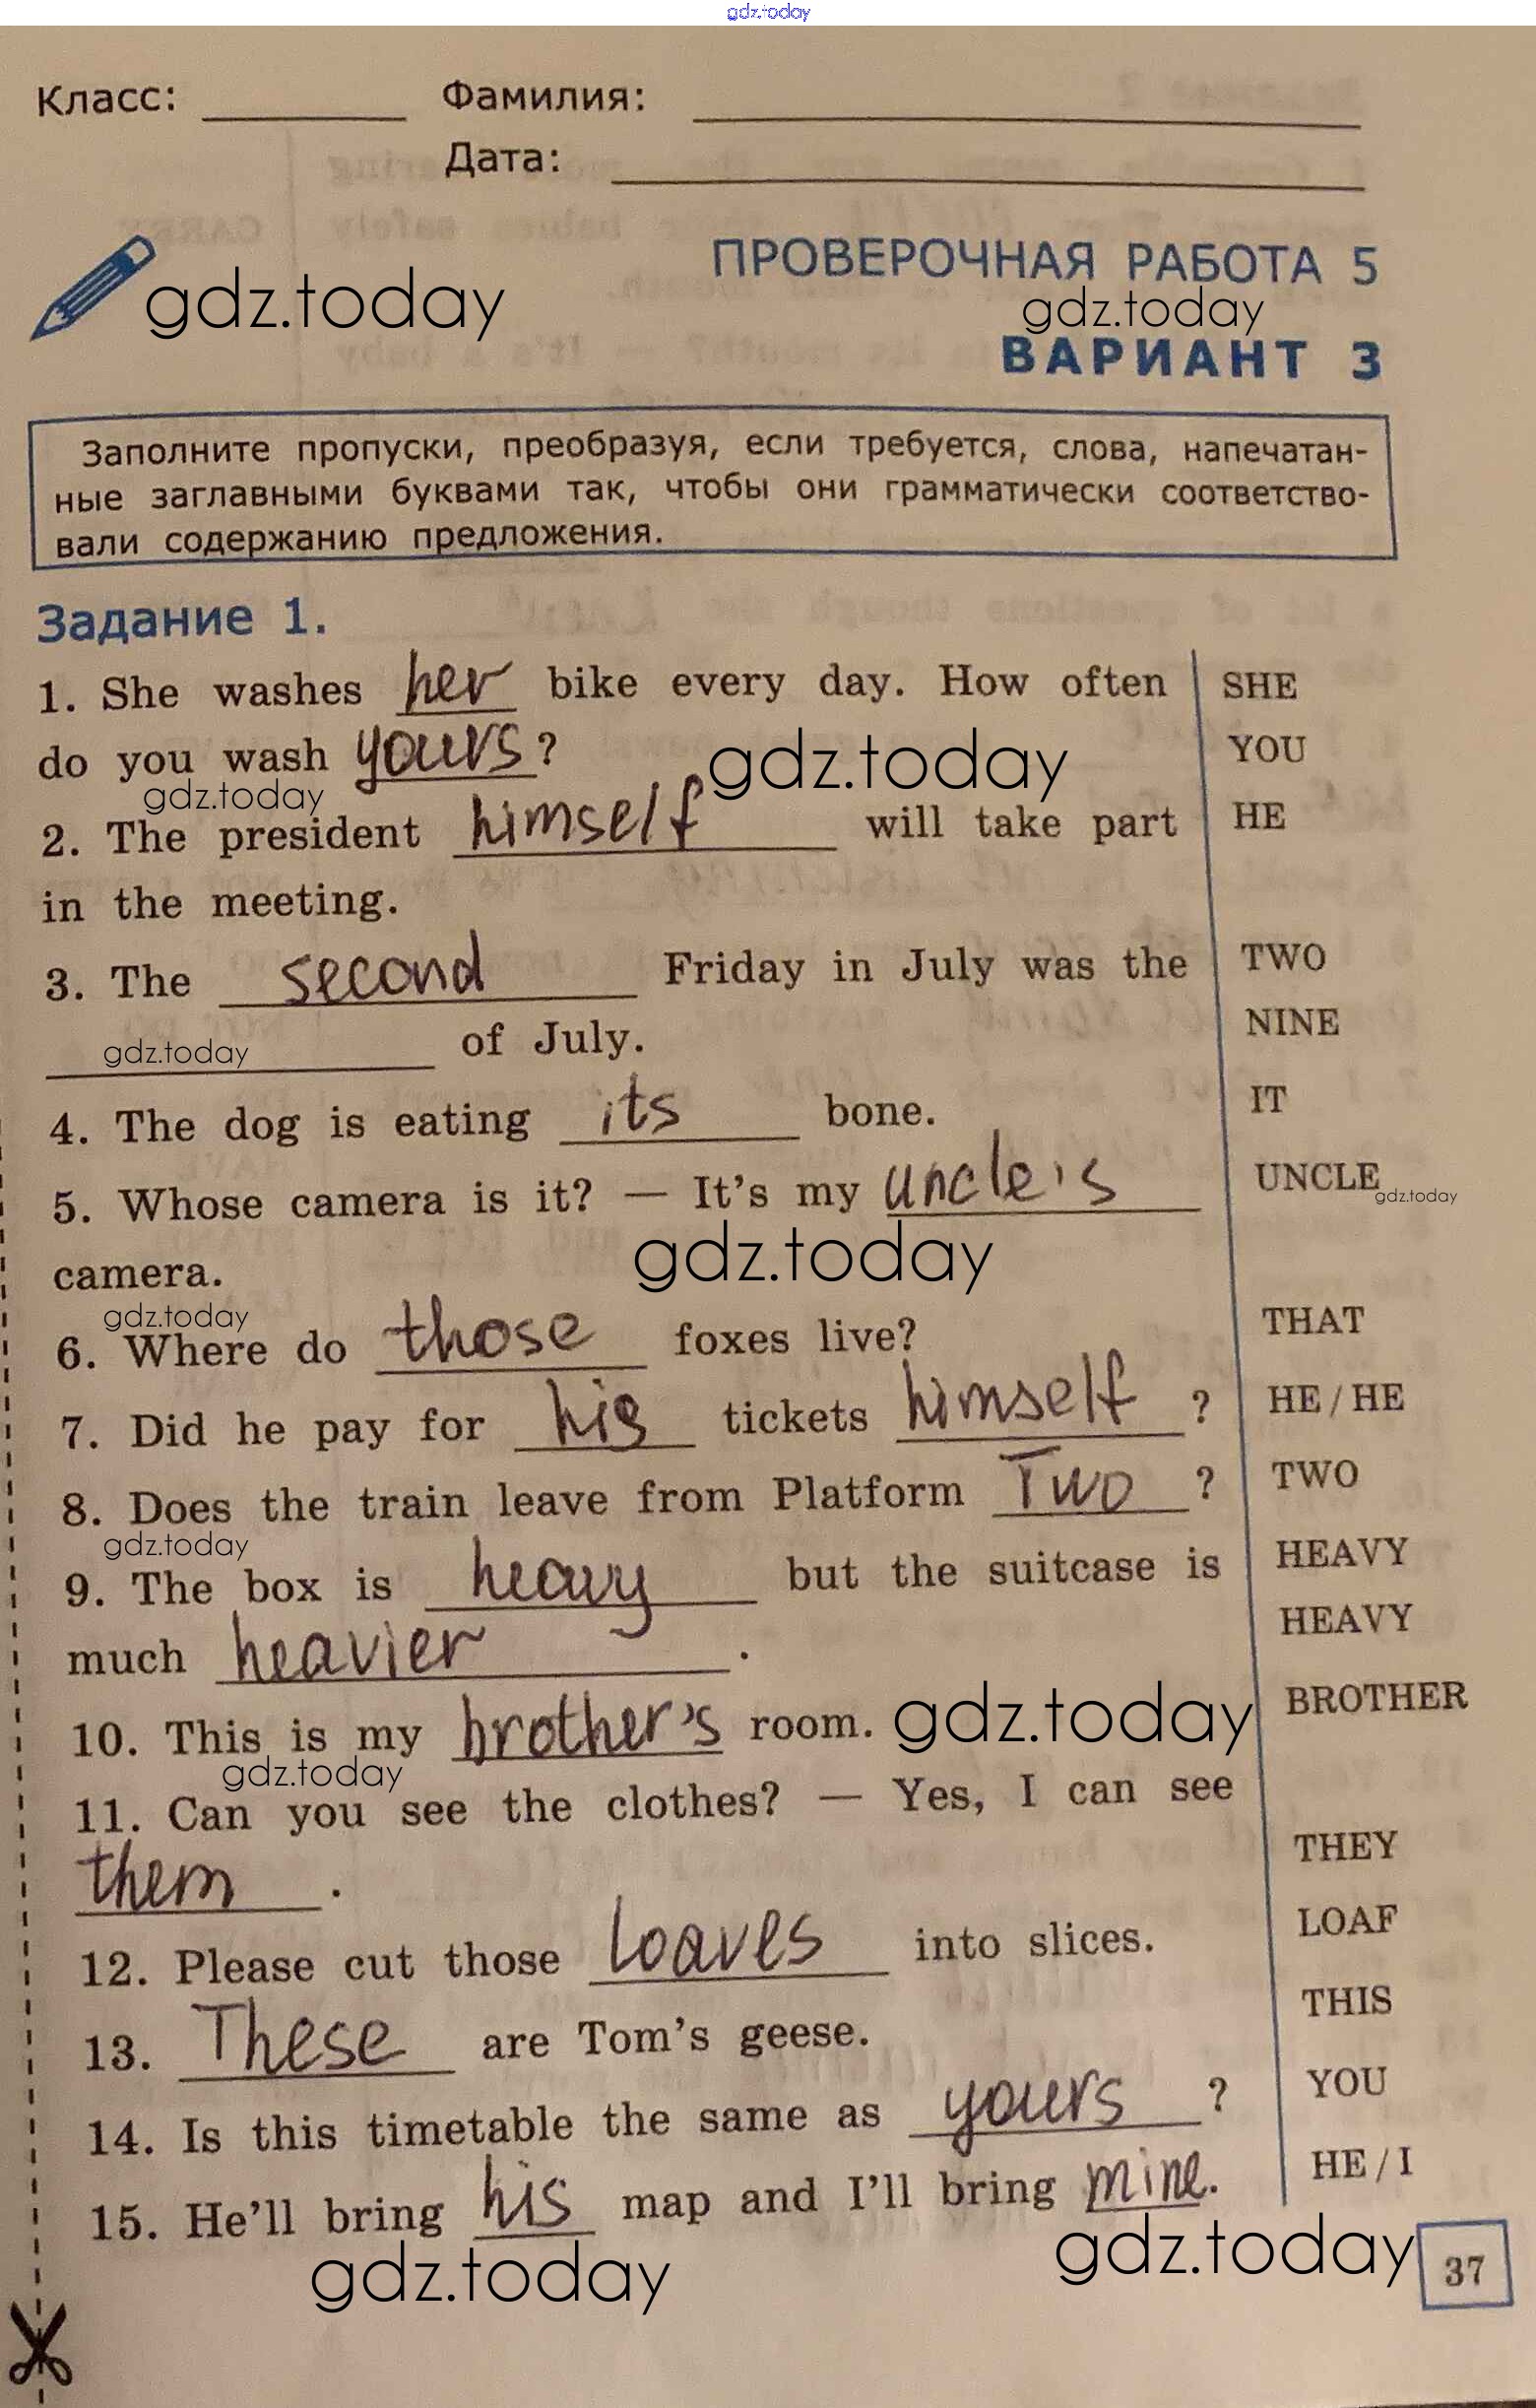 gdz.today
Класс: Фамилия:
Дата:
ПРОВЕРОЧНАЯ РАБОТА 5
gdz.today gdz.today
ВАРИАНТ 3
Заполните пропуски, преобразуя, если требуется, слова, напечатан-
ные заглавными буквами так, чтобы они грамматически соответство-
вали содержанию предложения.
Задание 1.
1. She washes her bike every day. How often SHE
do you wash yours? YOU
gdz.today
gdz.today
2. The president himself will take part HE
in the meeting.
3. The second Friday in July was the TWO
of July. NINE
gdz.today
4. The dog is eating its bone. IT
5. Whose camera is it? — It's my uncle's UNCLE
gdz.today
camera.
gdz.today
gdz.today
6. Where do those foxes live? THAT
7. Did he pay for his tickets himself? HE / HE
8. Does the train leave from Platform Two? TWO
gdz.today
9. The box is heavy but the suitcase is HEAVY
much heavier. HEAVY
10. This is my brother's room. BROTHER
gdz.today
gdz.today
11. Can you see the clothes? — Yes, I can see
them. THEY
12. Please cut those loaves into slices. LOAF
13. These are Tom's geese. THIS
14. Is this timetable the same as yours? YOU
15. He'll bring his map and I'll bring mine. HE / I
gdz.today gdz.today
37